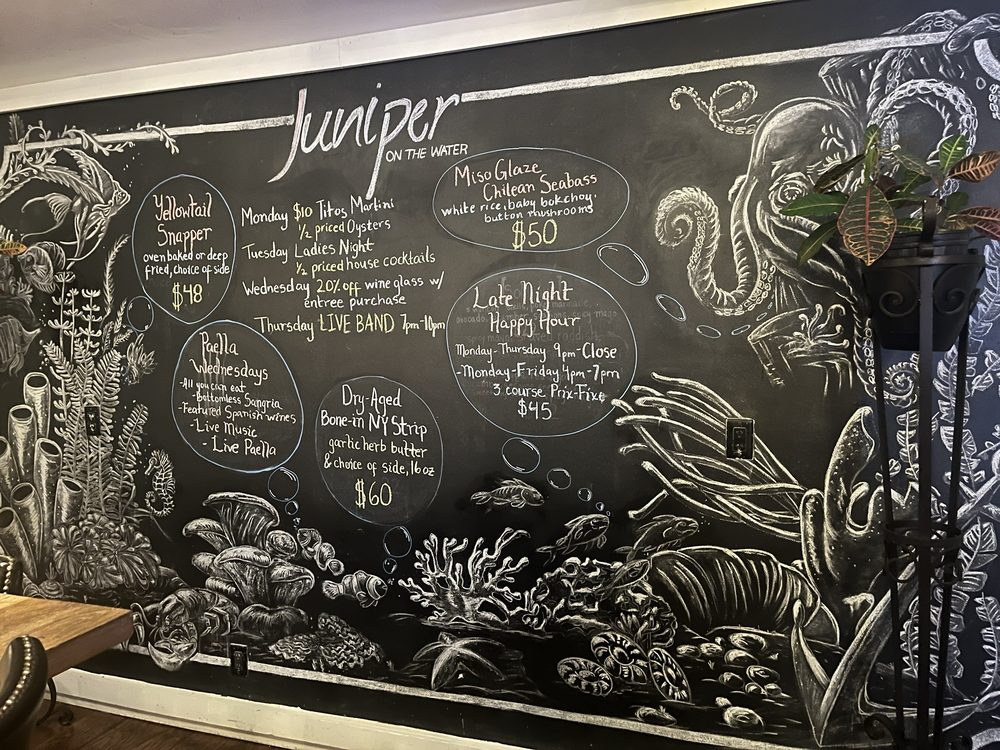 Juniper
ON THE WATER
Yellowtail
Snapper
oven baked or deep
fried, choice of side
$48
Monday $10 Titos Martini
1/2 priced Oysters
Tuesday Ladies Night
1/2 priced house cocktails
Wednesday 20% off wine glass w/
entree purchase
Thursday LIVE BAND 7pm-10pm
Miso Glaze
Chilean Seabass
white rice, baby bokchoy
button mushrooms
$50
Paella
Wednesdays
-All you can eat
-Bottomless Sangria
-Featured Spanish wines
-Live Music
-Live Paella
Dry-Aged
Bone-in NY Strip
garlic herb butter
& choice of side, 16 oz
$60
Late Night
Happy Hour
Monday-Thursday 9pm-Close
-Monday-Friday 4pm-7pm
3 course Prix-Fixe
$45